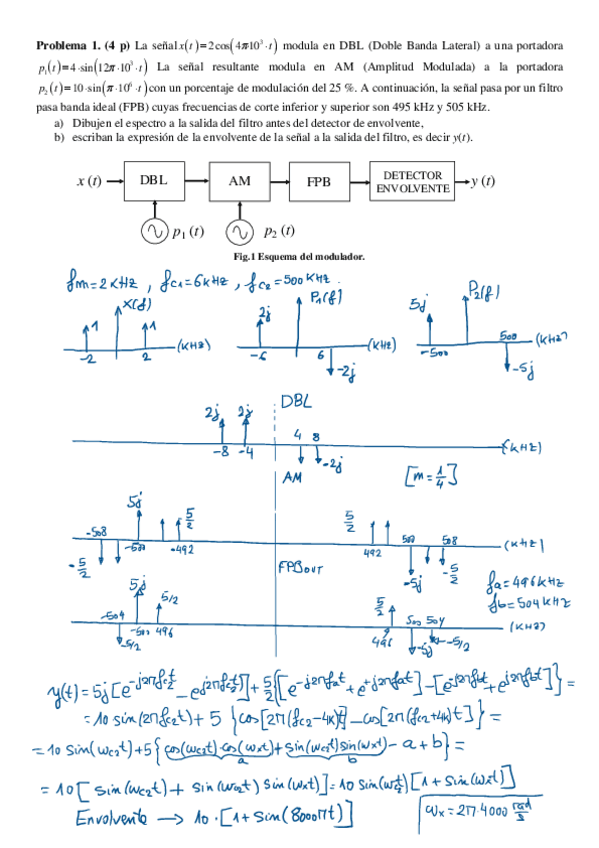 Problema 1. (4 p) La señal x(t)=2cos(4π·10³·t) modula en DBL (Doble Banda Lateral) a una portadora
p₁(t)=4·sin(12π·10³·t) La señal resultante modula en AM (Amplitud Modulada) a la portadora
p₂(t)=10·sin(π·10⁶·t) con un porcentaje de modulación del 25 %. A continuación, la señal pasa por un filtro
pasa banda ideal (FPB) cuyas frecuencias de corte inferior y superior son 495 kHz y 505 kHz.
a) Dibujen el espectro a la salida del filtro antes del detector de envolvente,
b) escriban la expresión de la envolvente de la señal a la salida del filtro, es decir y(t).
x (t) DBL AM FPB DETECTOR ENVOLVENTE y (t)
p₁ (t) p₂ (t)
Fig.1 Esquema del modulador.
fm=2KHz, fc1=6KHz, fc2=500KHz.
X(f) P1(f) P2(f)
1 1 2j 5j
-2 2 (KHz) -6 6 (KHz) -500 500 (KHz)
-2j -5j
DBL
2j 2j
-8 -4 4 8 (KHz)
-2j
AM [m=1/4]
5j 5/2 5/2
-508 -500 -492 492 500 508 (KHz)
-5/2 -5j -5/2
FPBOUT
fa=496KHz
fb=504KHz
5j 5/2 5/2
-504 -500 496 496 500 504 (KHz)
-5/2 -5j -5/2
= 10 sin(2πfc2t) + 5 {cos[2π(fc2-4K)t] - cos[2π(fc2+4K)t]} =
= 10 sin(wc2t)+5{cos(wc2t)·cos(wxt)+sin(wc2t)sin(wxt) - a + b} =
a b
= 10[sin(wc2t) + sin(wc2t) sin(wxt)] = 10 sin(wc2t)[1 + sin(wxt)]
Envolvente → 10·[1+sin(8000πt)]
wx = 2π·4000 rad/s